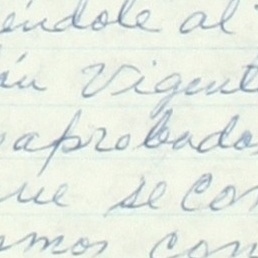 iéndole al
ón Vigent
aprobados
que se con
amos con